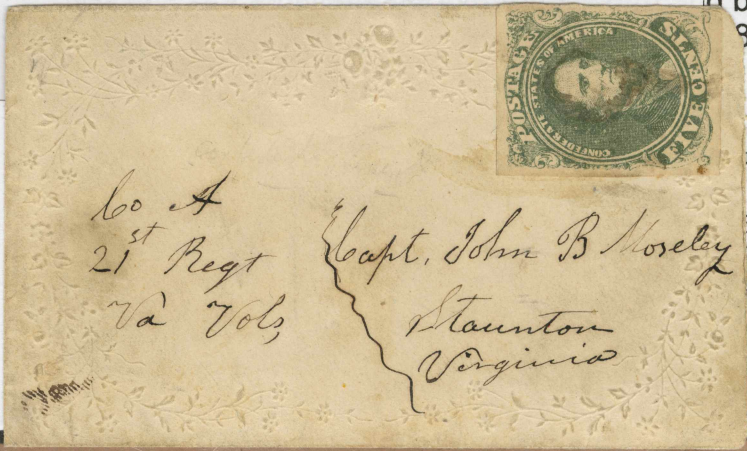 POSTAGE
CONFEDERATE STATES OF AMERICA
FIVE CENTS
Co A
21st Regt
Va Vols,
Capt. John B Moseley
Staunton
Virginia